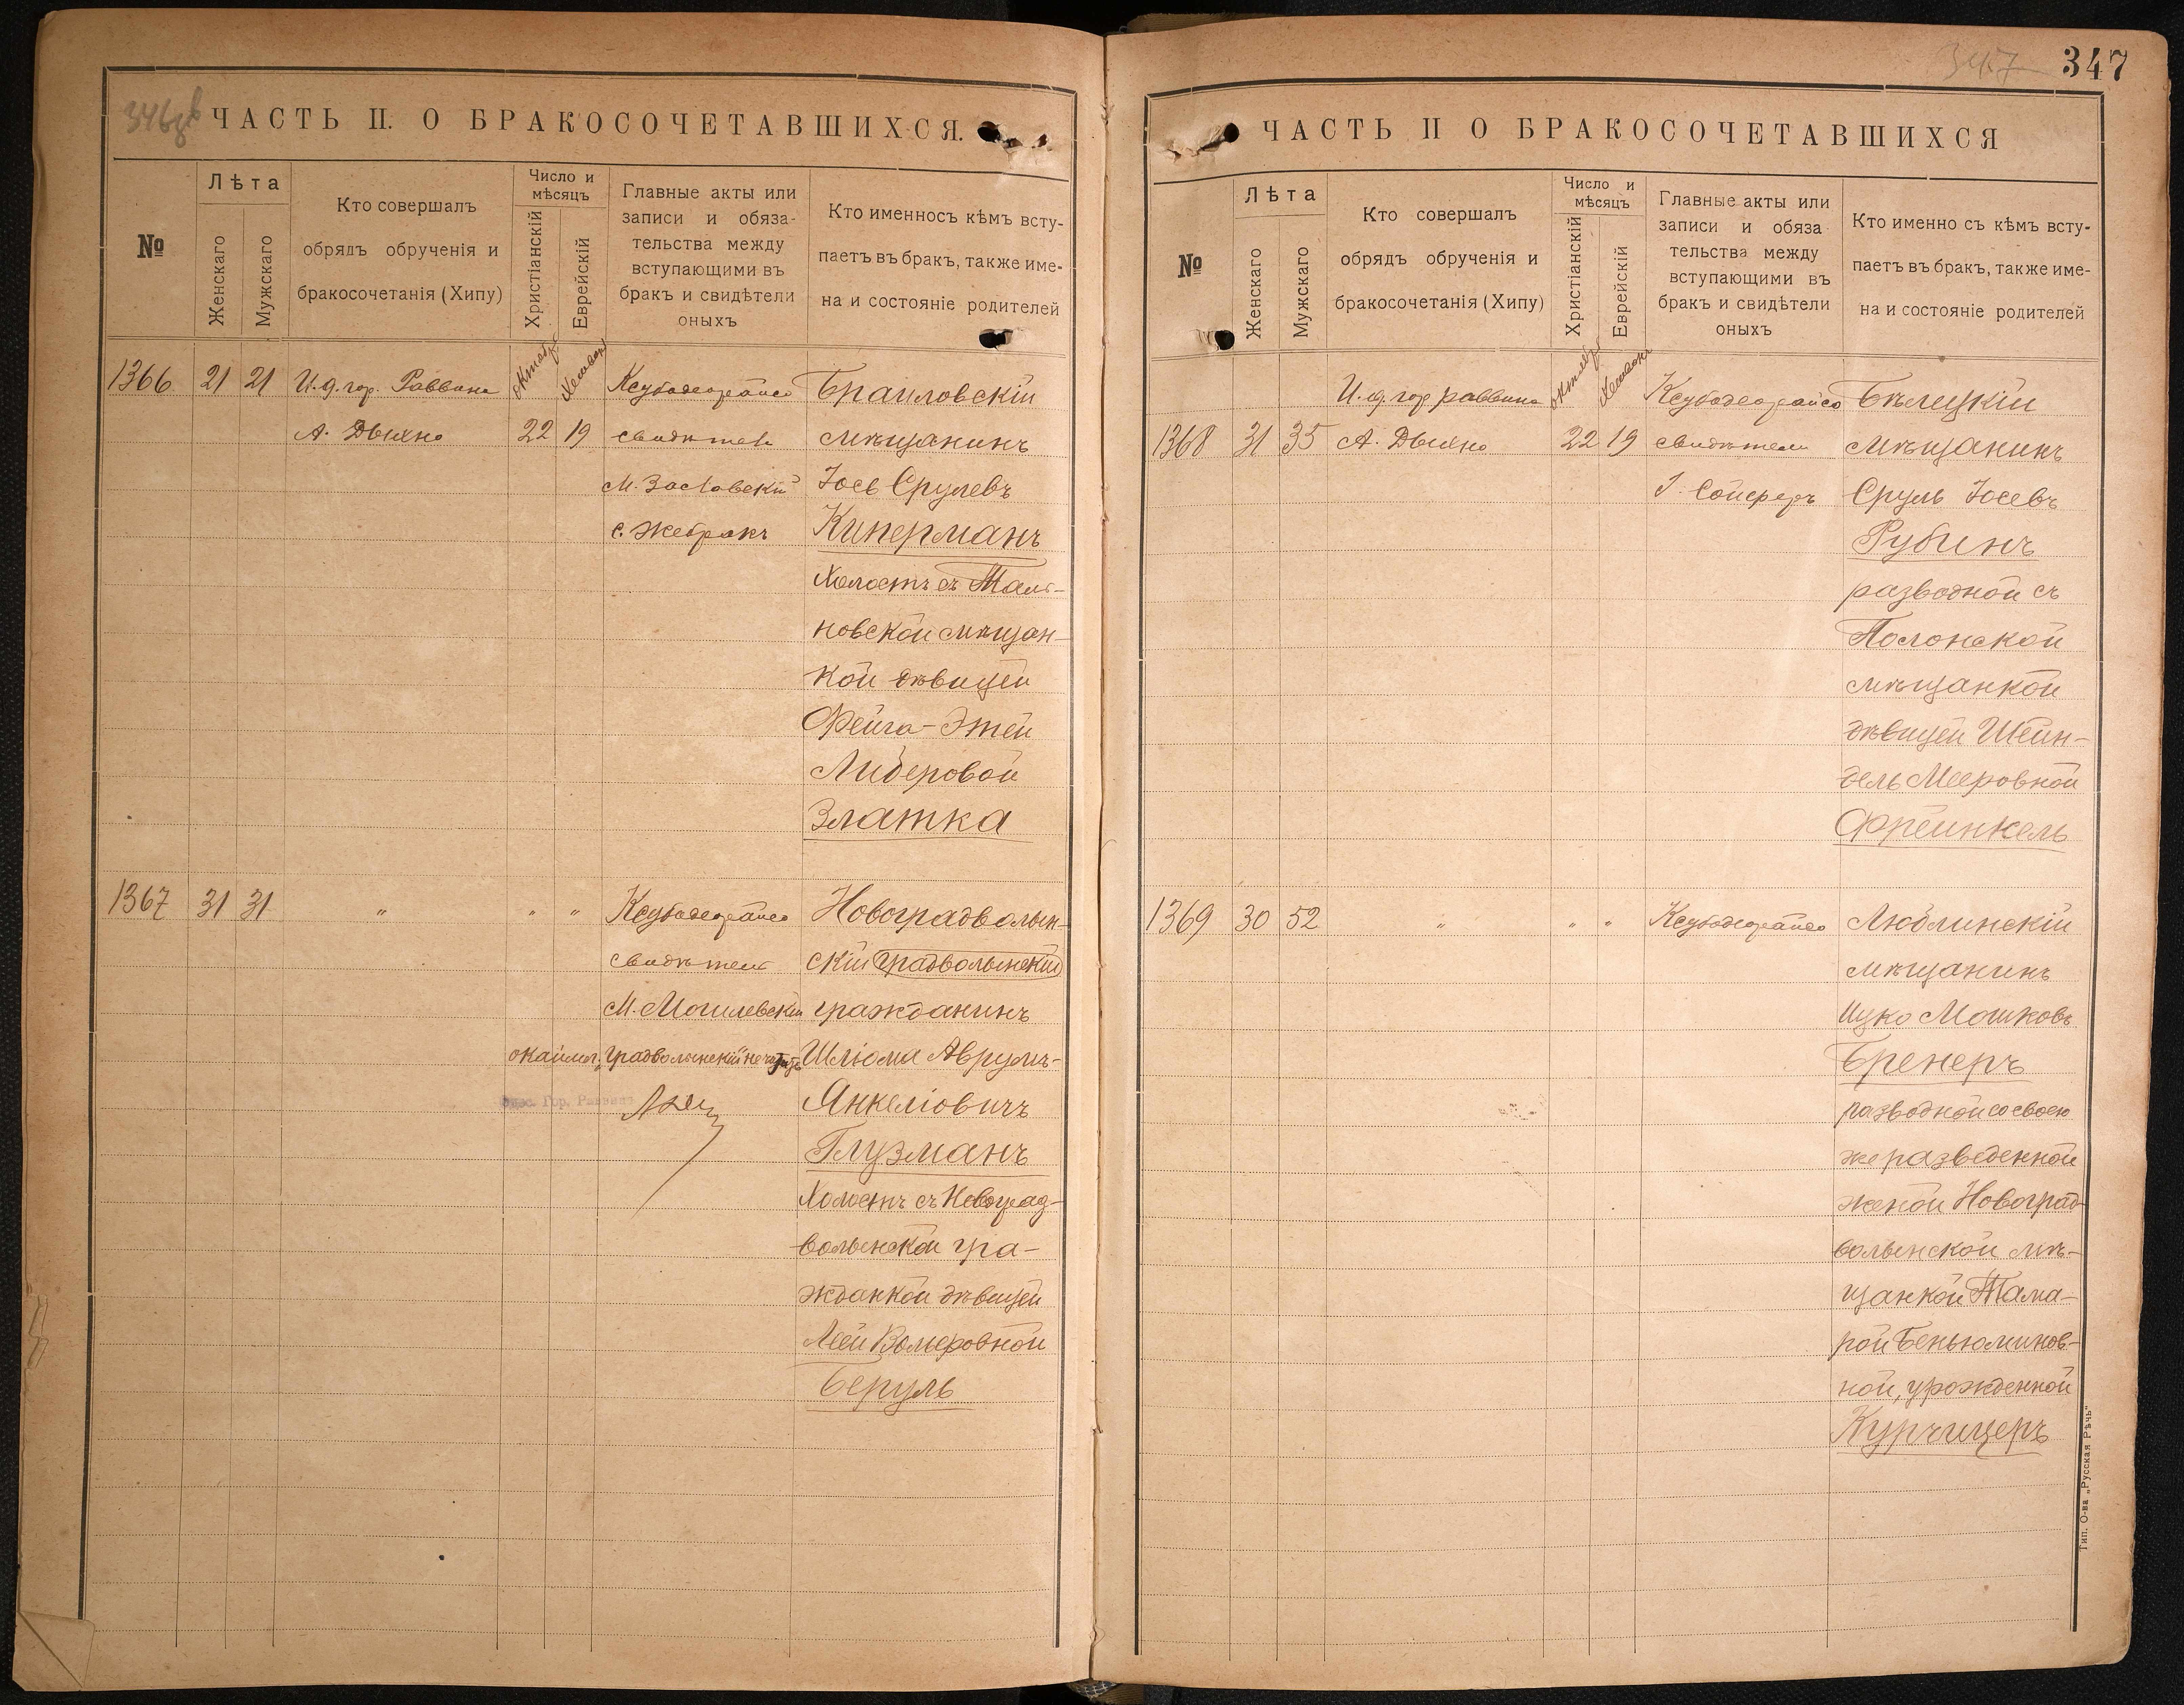 346 об
ЧАСТЬ II. О БРАКОСОЧЕТАВШИХСЯ.
№
Лѣта
Женскаго
Мужскаго
Кто совершалъ
обрядъ обрученія и
бракосочетанія (Хипу)
Число и
мѣсяцъ
Христіанскій
Еврейскій
Главные акты или
записи и обяза-
тельства между
вступающими въ
бракъ и свидѣтели
оныхъ
Кто именносъ кѣмъ всту-
паетъ въ бракъ, также име-
на и состояніе родителей
1366 21 21 И. д. гор. Раввина
А. Двилно
октябрь
Хешвонъ
22 19
Ксубодеорайсо
свидѣтели
М. Заславскій
С. Жебракъ
Браиловскій
мѣщанинъ
Іось Срулевъ
Киперманъ
Холостъ съ Таль-
новской мѣщан-
кой дѣвицей
Фейга-Этей
Либеровой
Златка
1367 31 31 " " "
Ксубодеорайсо
свидѣтели
М. Могилевскій
окаймл. „градволынскій" не читать
Гор. Раввинъ
Новоградволын-
скій градволынскій
гражданинъ
Шліома Аврумъ-
Янкеліовичъ
Глузманъ
Холостъ съ Новоград-
волынской гра-
жданкой дѣвицей
Леей Вольфовной
Беруль
347
347
ЧАСТЬ II О БРАКОСОЧЕТАВШИХСЯ
№
Лѣта
Женскаго
Мужскаго
Кто совершалъ
обрядъ обрученія и
бракосочетанія (Хипу)
Число и
мѣсяцъ
Христіанскій
Еврейскій
Главные акты или
записи и обяза
тельства между
вступающими въ
бракъ и свидѣтели
оныхъ
Кто именно съ кѣмъ всту-
паетъ въ бракъ, также име-
на и состояніе родителей
И. д. гор. раввина
1368 31 35 А. Двилно
октябрь
Хешвонъ
22 19
Ксубодеорайсо
свидѣтели
І. Сойферъ
Бѣлецкій
мѣщанинъ
Сруль Іосевъ
Рубинъ
разводной съ
Полонской
мѣщанкой
дѣвицей Шейн-
дель Мееровной
Фрейнкель
1369 30 52 " " "
Ксубодеорайсо
Люблинскій
мѣщанинъ
Ицко Мошковъ
Бренеръ
разводной со своею
же разведенной
женой Новоград-
волынской мѣ-
щанкой Тама-
рой Беньюминов-
ной, урожденной
Курчицеръ
Тип. О-ва „Русская Рѣчь"